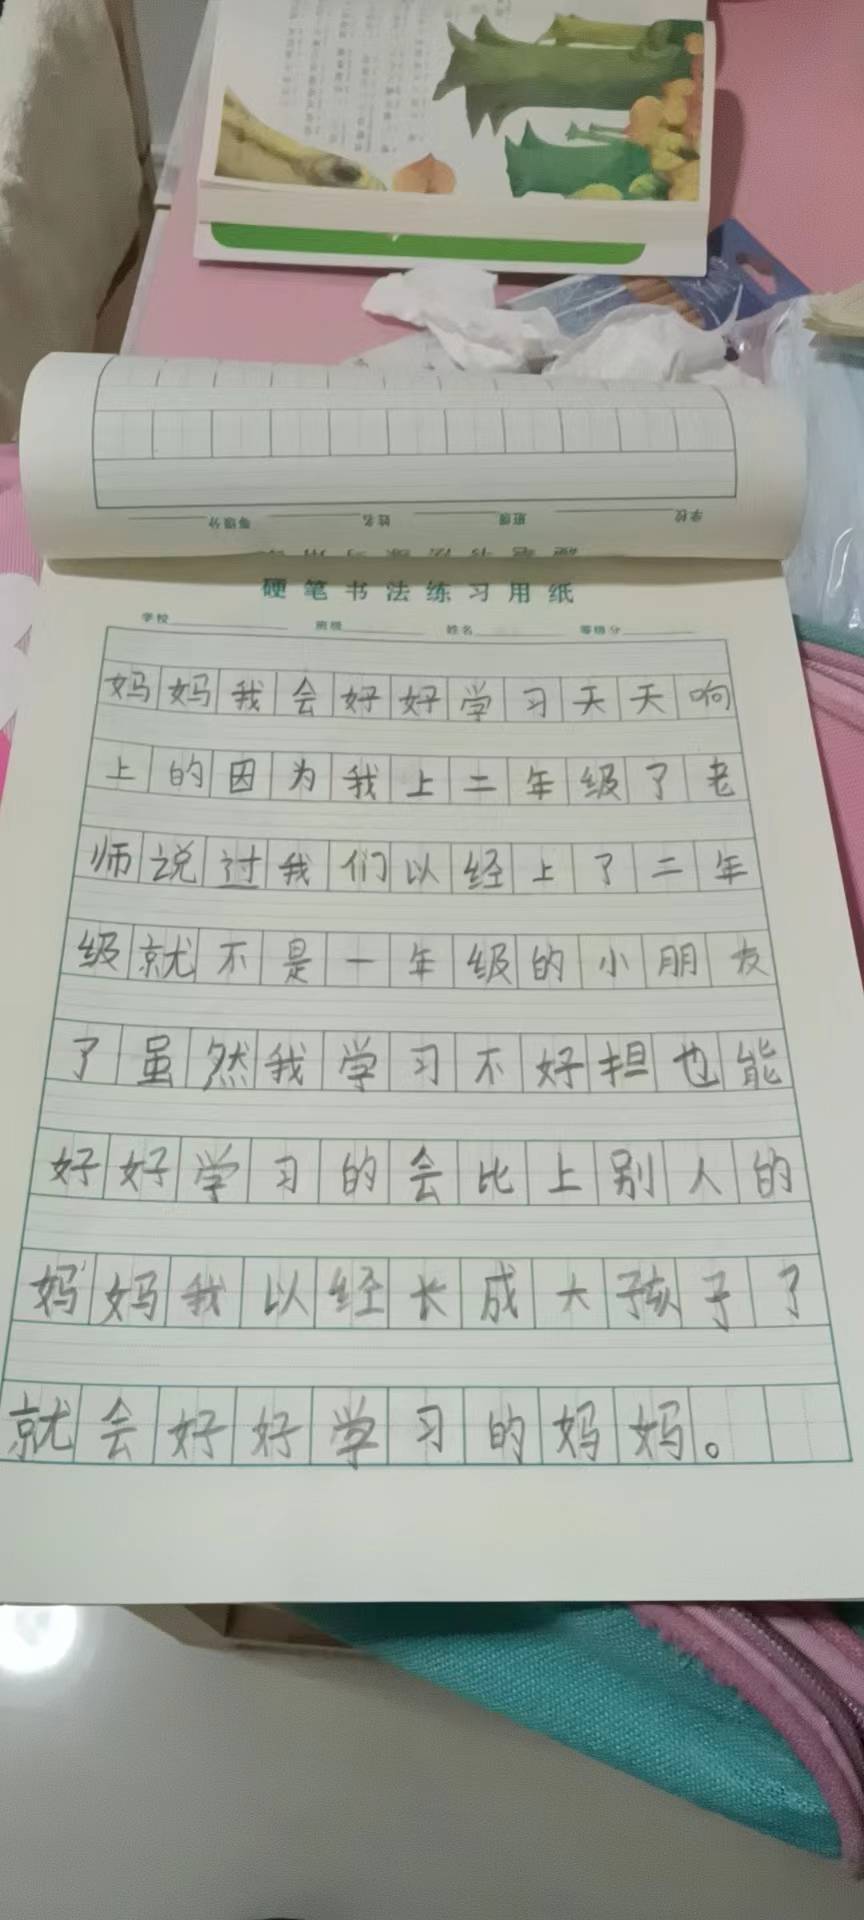 硬笔书法练习用纸
学校 班级 姓名 等级分
妈妈我会好好学习天天响
上的因为我上二年级了老
师说过我们以经上了二年
级就不是一年级的小朋友
了虽然我学习不好担也能
好好学习的会比上别人的
妈妈我以经长成大孩子了
就会好好学习的妈妈。